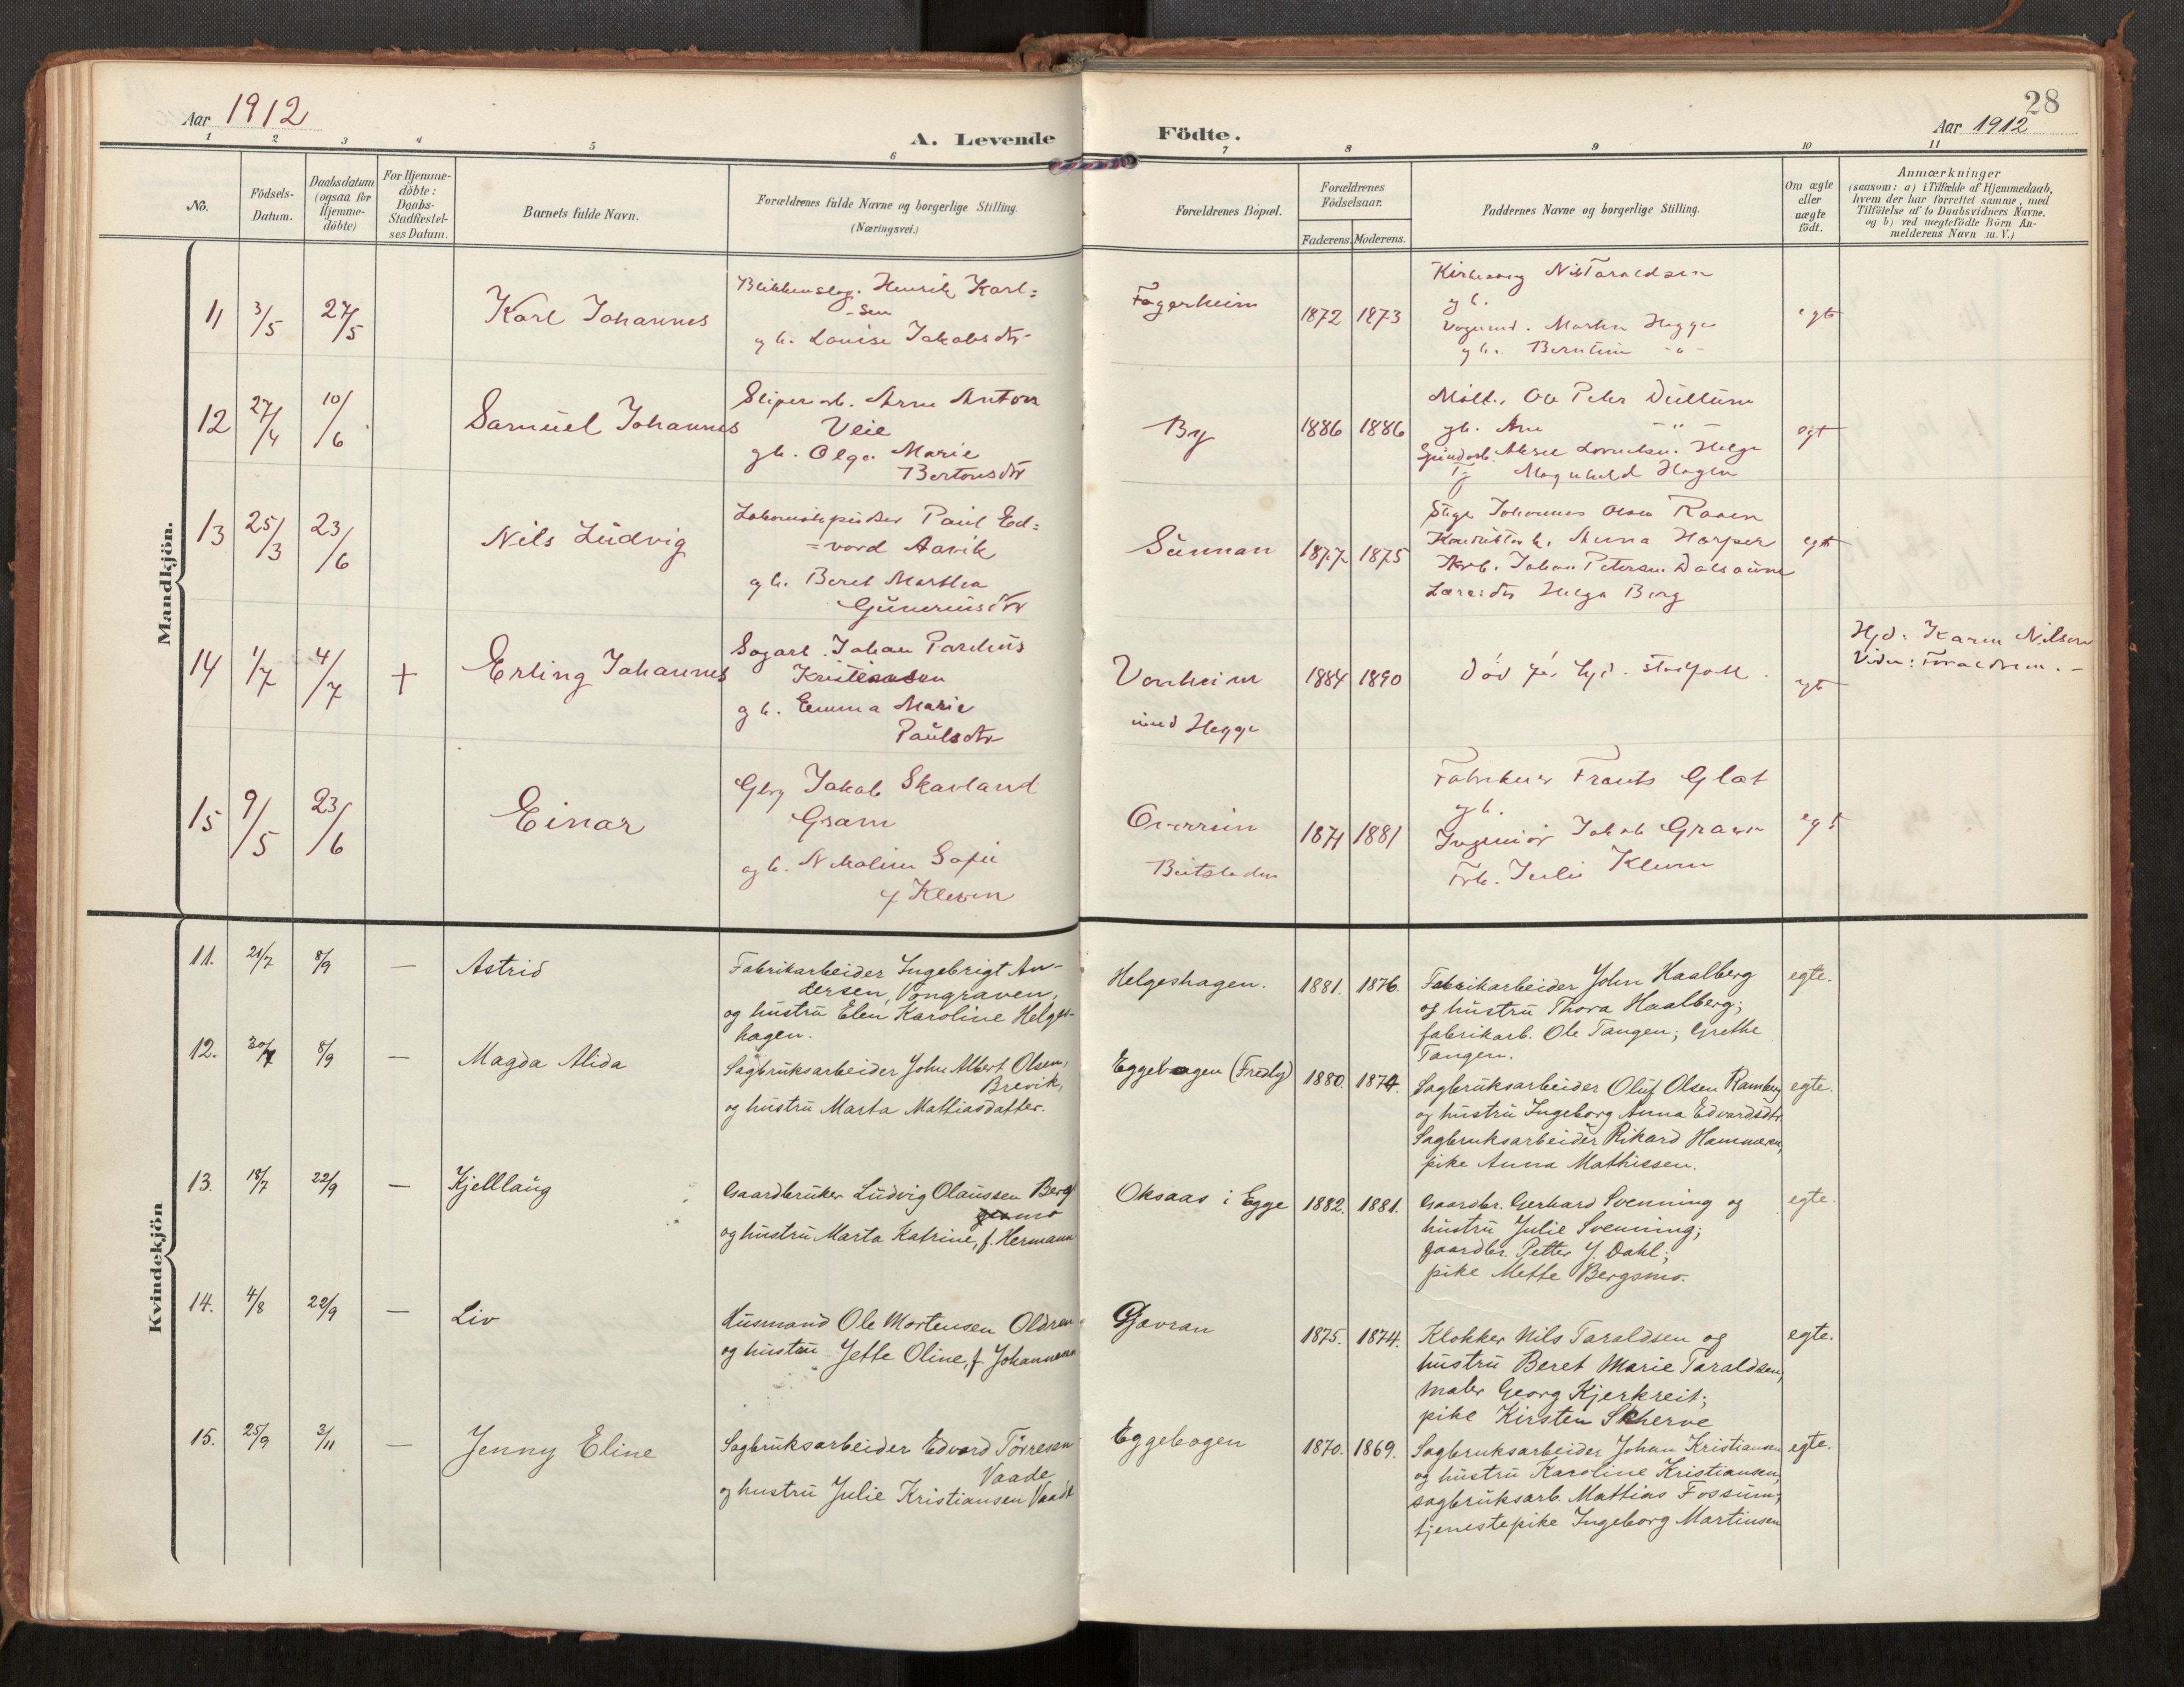 Aar 1912
A. Levende
Födte.
28
Aar 1912
1 2 3 4 5 6 7 8 9 10 11
No.
Födsels-
Datum.
Daabsdatum
(ogsaa for
Hjemme-
döbte)
For Hjemme-
döbte:
Daabs-
Stadfæstel-
ses Datum.
Barnets fulde Navn.
Forældrenes fulde Navne og borgerlige Stilling.
(Næringsvei.)
Forældrenes Bopæl.
Forældrenes
Födselsaar.
Faderens. Moderens.
Faddernes Navne og borgerlige Stilling.
Om ægte
eller
uægte
födt.
Anmærkninger
(saasom: a) i Tilfælde af Hjemmedaab,
hvem der har forrettet samme, med
Tilföielse af to Daabsvidners Navne,
og b) ved uægtefödte Börn An-
melderens Navn m. V.)
Mandkjön.
11 3/5 27/5 Karl Johannes
Blikkenslag. Henrik Karl=
-sen
gh. Louise Jakobsdtr
Fagerheim
1872 1873
Nils Taraldsen
gh.
Martin Hegge
gh. Berntine -"-
egt
12 27/4 10/6 Samuel Johannes
Sliperarb. Arne Anton
Veie
gh. Olga Marie
By
1886 1886
Ole Peter Dullum
gh. -"-
Helge
Hagen
egt
13 25/3 23/6 Nils Ludvig
Paul Ed=
=vard Aavik
gh. Beret Marthea
Guneriusdtr
Sunnan
1877 1875
Johannes Olsen
Anna Harper
Johan Petersen
Helga Berg
egt
14 1/7 4/7 + Erling Johannes
Sagarb. Johan Parelius
Kristiansen
gh. Emma Marie
Paulsdtr
Vonheim
Hegge
1884 1890
död för hjd. stadfæst.
egt
Hjd: Karen Nilsen
Vidn: Forældrene.-
15 9/5 23/6 Einar
Gbr Jakob Skavland
Gram
gh. Sofie
f Klevn
Beitstaden
1871 1881
Frants Glat
gh.
Ingeniör Jakob Gram
Frk. Julie Klevn
egt
Kvindekjön
11. 21/7 8/9 — Astrid
Fabrikarbeider Ingebrigt An-
dersen, Vongraven,
og hustru Elen Karoline Helges-
hagen.
Helgeshagen. 1881. 1876.
Fabrikarbeider John Haalberg
og hustru Thora Haalberg;
fabrikarb. Ole Tangen; Grethe
Tangen.
egte.
12. 30/7 8/9 — Magda Alida
Sagbruksarbeider John Albert Olsen,
Brevik,
og hustru Marta Mattiasdatter.
Eggebogen (Fredly) 1880. 1874.
Sagbruksarbeider Oluf Olsen Ramberg
og hustru Ingeborg Anna Edvardsdtr.
Sagbruksarbeider Rikard Hammeren,
pike Anna Mathissen.
egte.
13. 18/7 22/9 — Kjellaug
Gaardbruker Ludvig Olaussen Berg
og hustru Marta Katrine, f. Hermann
Oksaas i Egge 1882. 1881.
Gaardbr. Gerhard Svenning og
hustru Julie Svenning;
gaardbr. Petter J. Dahl;
pike Mette Bergsmo.
egte.
14. 4/8 22/9 — Liv
Husmand Ole Mortensen Oldren
og hustru Jette Oline, f. Johannesen
Gjævran 1875. 1874.
Klokker Nils Taraldsen og
hustru Beret Marie Taraldsen,
maler Georg Kjerkreit;
pike Kirsten Skherve
egte.
15. 25/9 3/11 — Jenny Eline
Sagbruksarbeider Edvard Törresen
Vaade
og hustru Julie Kristiansen Vaade
Eggebogen 1870. 1869.
Sagbruksarbeider Johan Kristiansen
og hustru Karoline Kristiansen,
sagbruksarb. Mattias Fossum;
tjenestepike Ingeborg Martinsen
egte.